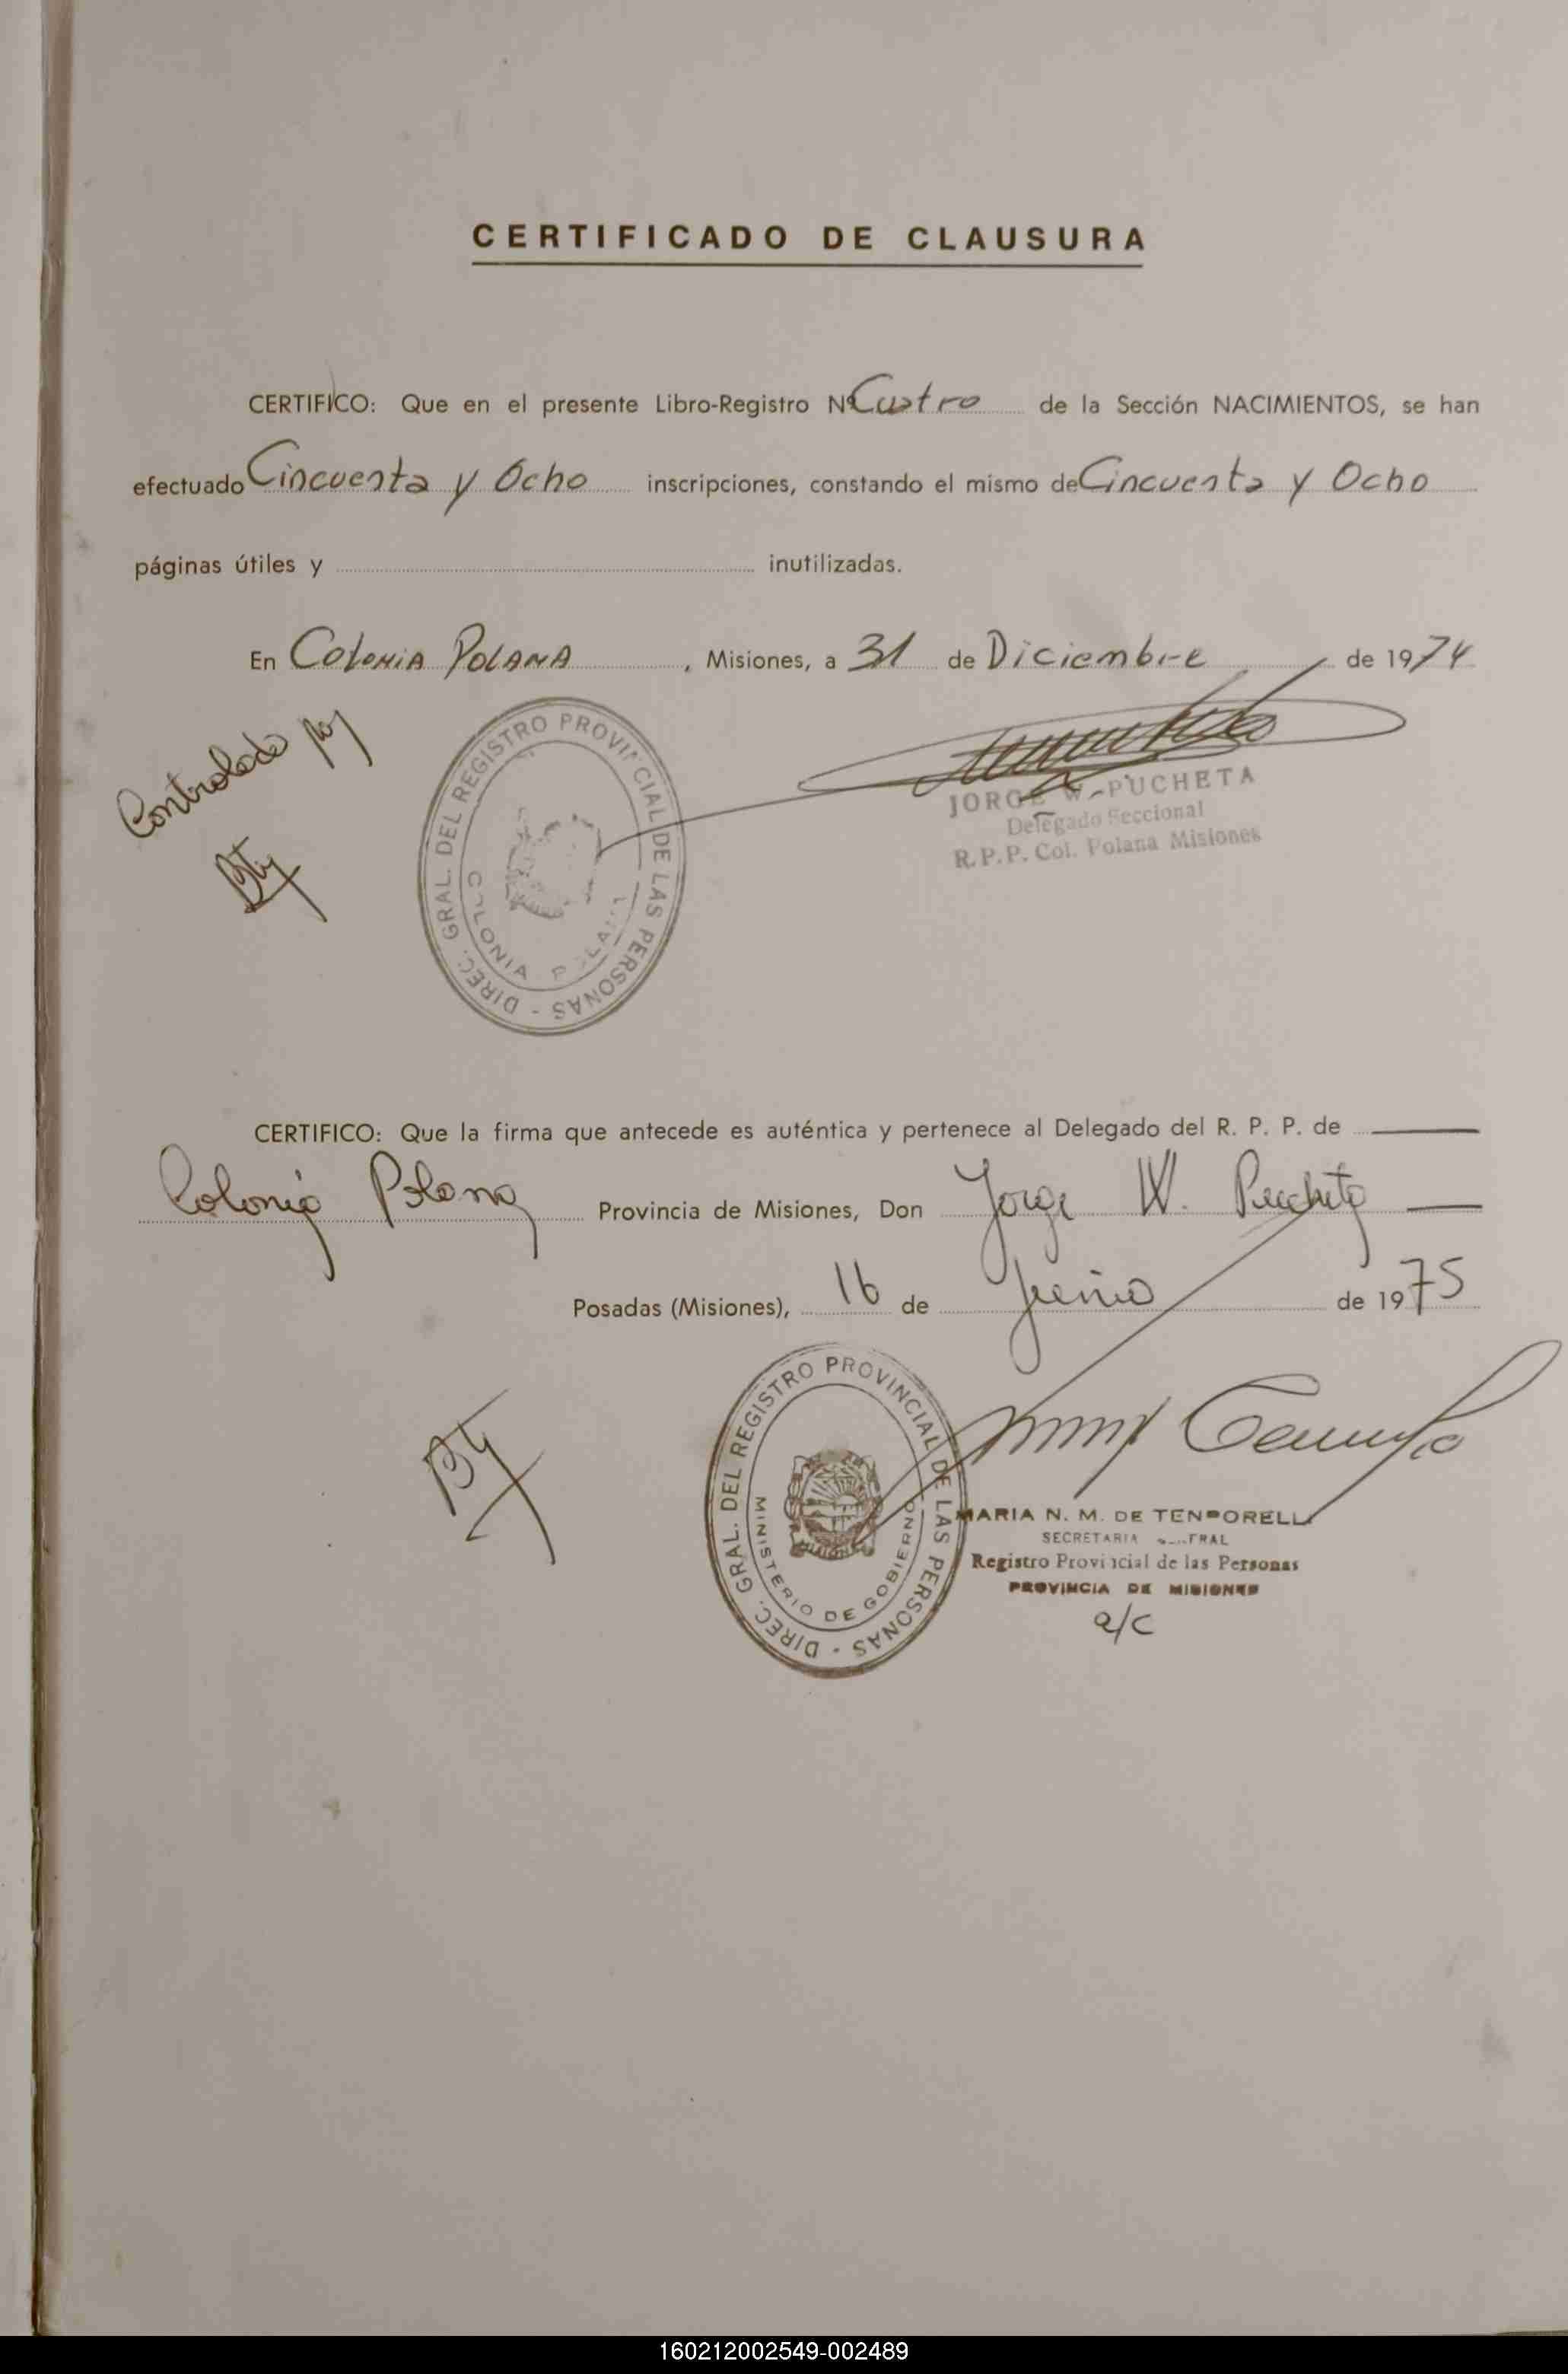 CERTIFICADO DE CLAUSURA
CERTIFICO: Que en el presente Libro-Registro Nº Cuatro de la Sección NACIMIENTOS, se han
efectuado Cincuenta y Ocho inscripciones, constando el mismo de Cincuenta y Ocho
páginas útiles y inutilizadas.
En Colonia Polana, Misiones, a 31 de Diciembre de 1974
Controlado por
DIREC. GRAL. DEL REGISTRO PROVINCIAL DE LAS PERSONAS -
COLONIA POLANA
JORGE W. PUCHETA
Delegado Seccional
R.P.P. Col. Polana Misiones
CERTIFICO: Que la firma que antecede es auténtica y pertenece al Delegado del R. P. P. de
Colonia Polana Provincia de Misiones, Don Jorge W. Pucheta
Posadas (Misiones), 16 de Junio de 1975
DIREC. GRAL. DEL REGISTRO PROVINCIAL DE LAS PERSONAS -
MINISTERIO DE GOBIERNO
MARIA N. M. DE
SECRETARIA
Registro Provincial de las Personas
PROVINCIA DE MISIONES
a/c
160212002549-002489